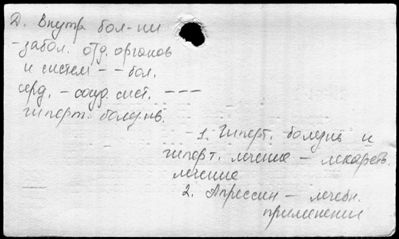 Д. Внутр. бол-ни
- забол. отд. органов
и систем - - бол.
серд. - сосуд. сист. - - -
гиперт. болезнь.
1. Гиперт. болезнь и
гиперт. лечение - лекарств.
лечение
2. Апрессин - лечебн.
применение